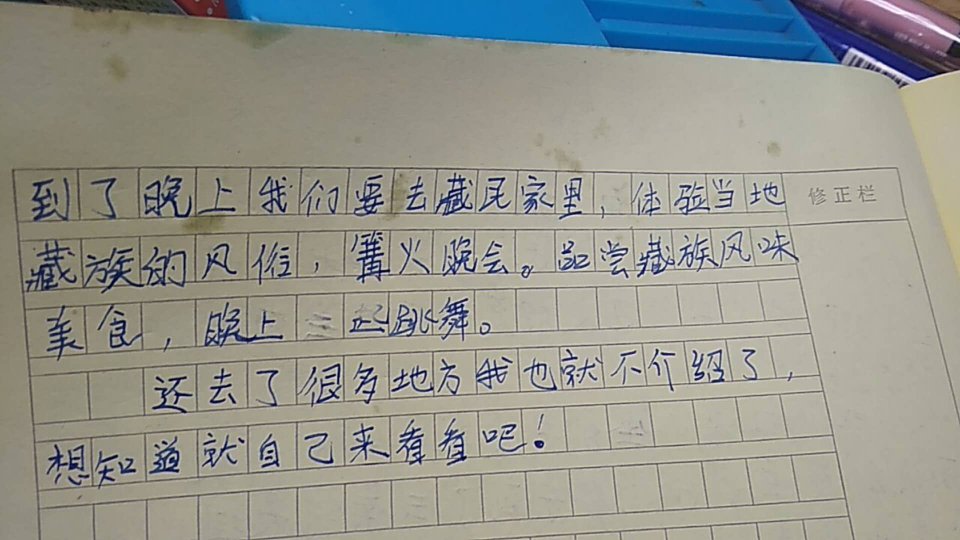 到了晚上我们要去藏民家里，体验当地
修正栏
藏族的风俗，篝火晚会。品尝藏族风味
美食，晚上一起跳舞。
还去了很多地方我也就不介绍了，
想知道就自己来看看吧！